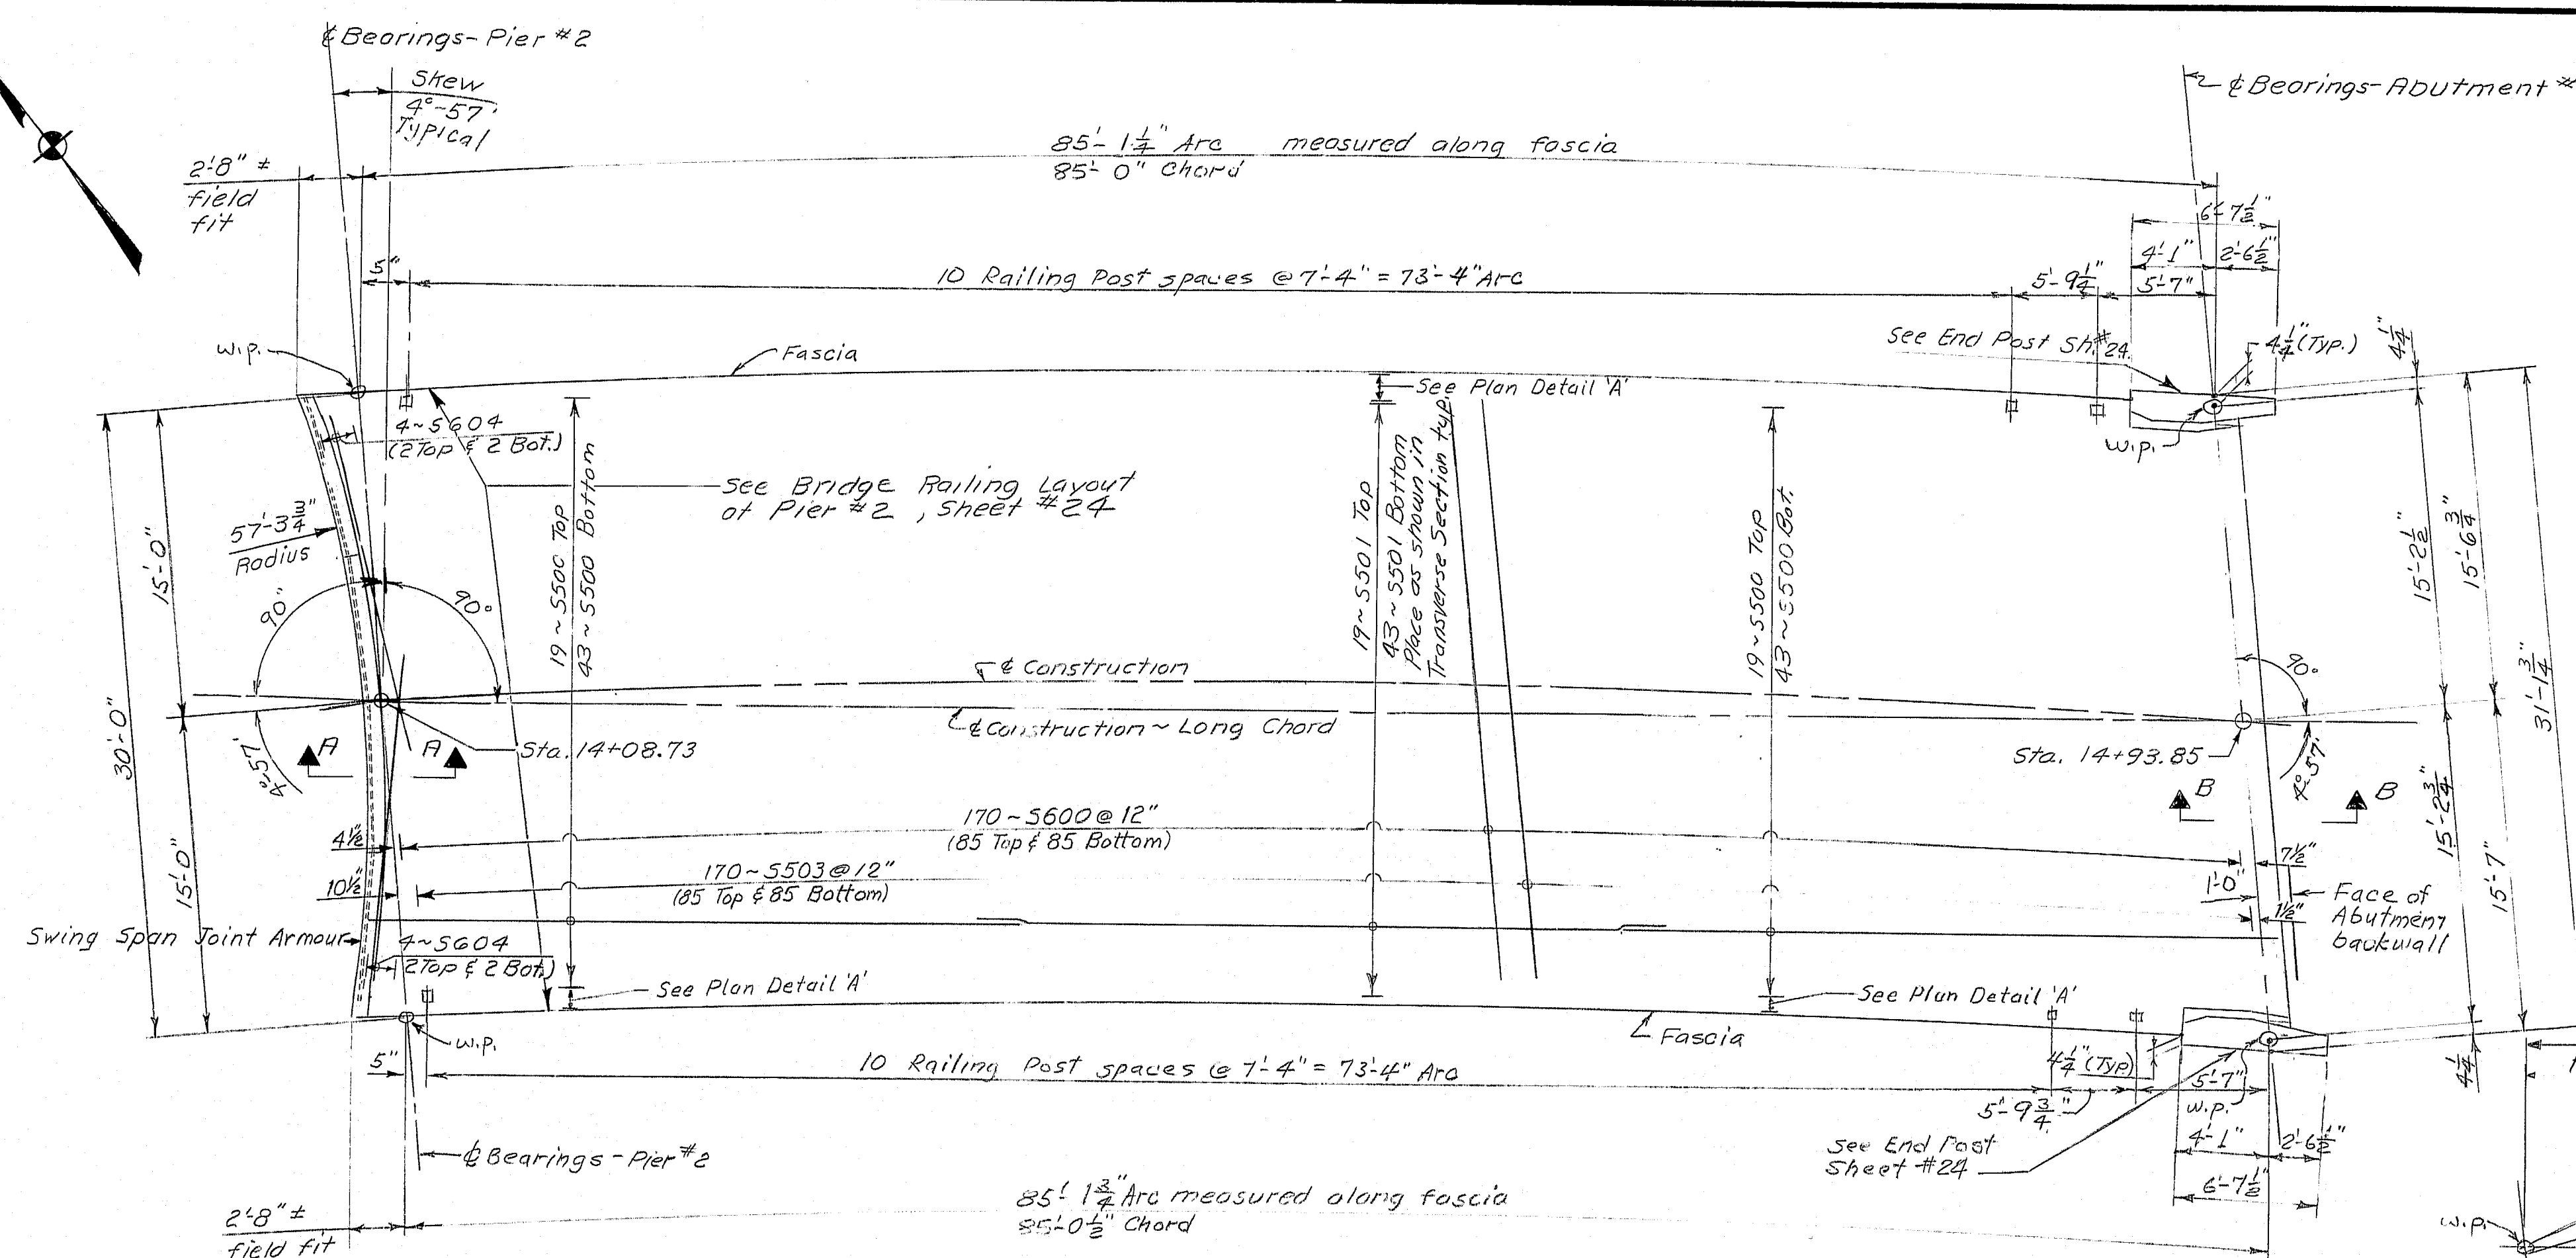 ℄ Bearings - Pier #2
Skew
4°-57'
Typical
2'-8" ±
field
fit
85'- 1 1/4" Arc measured along fascia
85'- 0" Chord
℄ Bearings - Abutment #
6'-7 1/2"
4'-1" 2'-6 1/2"
5"
10 Railing Post spaces @ 7'-4" = 73'-4" Arc
5'-9 1/4" 5'-7"
W.P.
Fascia
See End Post Sh.#24
4 1/4" (Typ.)
4 1/4"
See Plan Detail 'A'
W.P.
4~S604
(2 Top & 2 Bot.)
See Bridge Railing Layout
at Pier #2 , Sheet #24
57'-3 3/4"
Radius
15'-0"
90°
90°
19~S500 Top
43~S500 Bottom
19~S501 Top
43~S501 Bottom
Place as shown in
Transverse Section typ.
19~S500 Top
43~S500 Bot.
15'-2 1/2"
15'-6 3/4"
31'-1 3/4"
90°
℄ Construction
℄ Construction ~ Long Chord
30'-0"
4°-57'
A A
Sta. 14+08.73
Sta. 14+93.85
4°-57'
B B
15'-0"
4 1/2"
170~S600 @ 12"
(85 Top & 85 Bottom)
10 1/2"
170~S503 @ 12"
(85 Top & 85 Bottom)
7 1/2"
1'-0"
1 1/2"
Face of
Abutment
backwall
15'-2 3/4"
15'-7"
Swing Span Joint Armour
4~S604
2 Top & 2 Bot.)
See Plan Detail 'A'
See Plan Detail 'A'
Fascia
W.P.
5"
10 Railing Post spaces @ 7'-4" = 73'-4" Arc
4 1/4" (Typ)
5'-9 3/4"
5'-7"
W.P.
4 1/4"
4'-1" 2'-6 1/2"
6'-7 1/2"
℄ Bearings - Pier #2
See End Post
Sheet #24
85'- 1 3/4" Arc measured along fascia
85'-0 1/2" Chord
2'-8" ±
field fit
W.P.